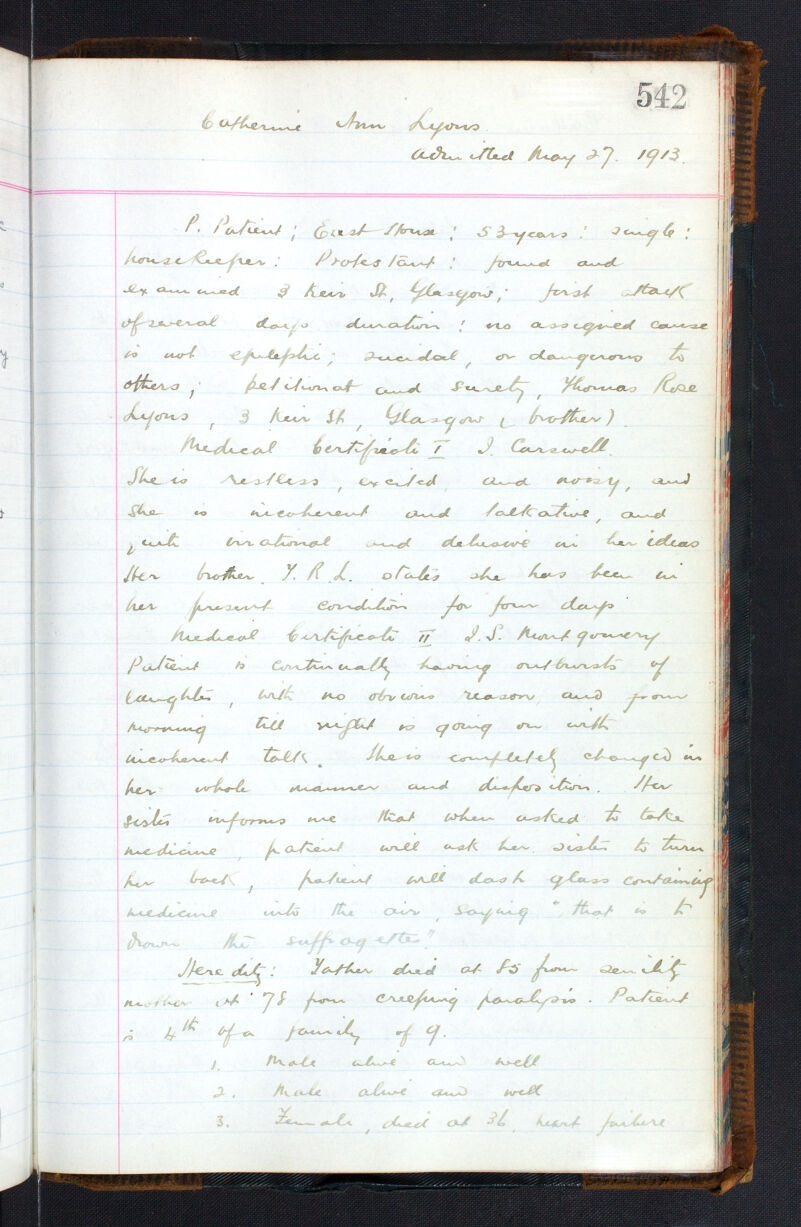 542
Catherine Ann Lyons.
Admitted May 27. 1913.
P. Patient; East House: 53 years: single:
housekeeper: Protestant: found and
examined 3 Keir St, Glasgow; first attack
of several days duration: no assigned cause
is not epileptic; suicidal, or dangerous to
others; petitionat and surety, Thomas Rose
Lyons, 3 Keir St, Glasgow (brother).
Medical Certificate I J. Carswell.
She is restless, excited and noisy, and
she is incoherent and talkative, and
quite irrational and delusive in her ideas
Her brother, T. R. L. states she has been in
her present condition for four days
Medical Certificate II J. S. Montgomery
Patient is continually having outbursts of
laughter, with no obvious reason, and from
morning till night is going on with
incoherent talk. She is completely changed in
her whole manner and disposition. Her
sister informs me that when asked to take
medicine, patient will ask her sister to turn
her back, patient will dash glass containing
medicine into the air, saying "that is to
drown the suffragettes".
Heredity: Father died at 85 from senility
mother at 78 from creeping paralysis. Patient
is 4th of a family of 9.
1. Male alive and well
2. Male alive and well
3. Female, died at 36, heart failure